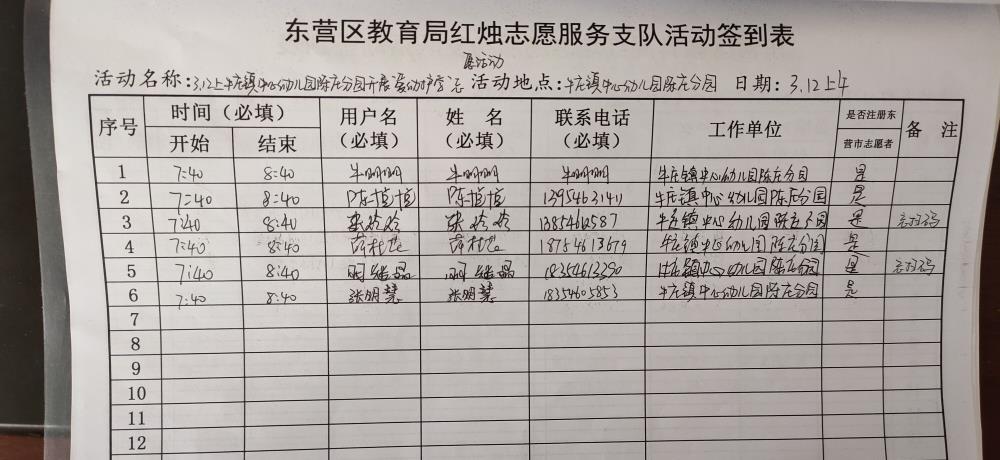 东营区教育局红烛志愿服务支队活动签到表
愿活动
活动名称:3.12上午牛庄镇中心幼儿园陈庄分园开展 活动地点:牛庄镇中心幼儿园陈庄分园 日期:3.12上午
序号 时间(必填) 用户名(必填) 姓 名(必填) 联系电话(必填) 工作单位 是否注册东营市志愿者 备 注
开始 结束
1 7:40 8:40 牛明明 牛明明 牛明明 牛庄镇中心幼儿园陈庄分园 是
2 7:40 8:40 陈植植 陈植植 牛庄镇中心幼儿园陈庄分园 是
3 7:40 8:40 张玲玲 张玲玲 牛庄镇中心幼儿园陈庄分园 是 忘扫码
4 7:40 8:40 18754613679 牛庄镇中心幼儿园陈庄分园 是
5 7:40 8:40 18354613290 牛庄镇中心幼儿园陈庄分园 是 忘扫码
6 7:40 8:40 张明慧 张明慧 18354605853 牛庄镇中心幼儿园陈庄分园 是
7
8
9
10
11
12